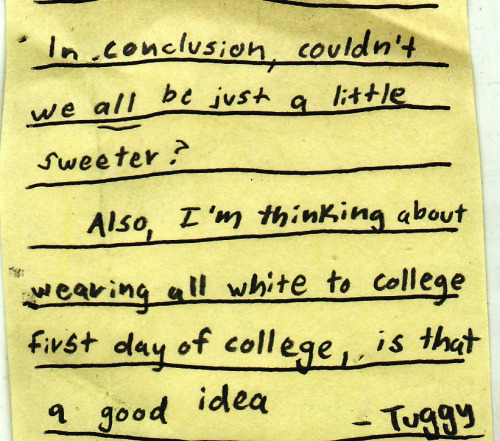 In conclusion, couldn't
we all be just a little
sweeter?
Also, I'm thinking about
wearing all white to college
first day of college, is that
a good idea
- Tuggy